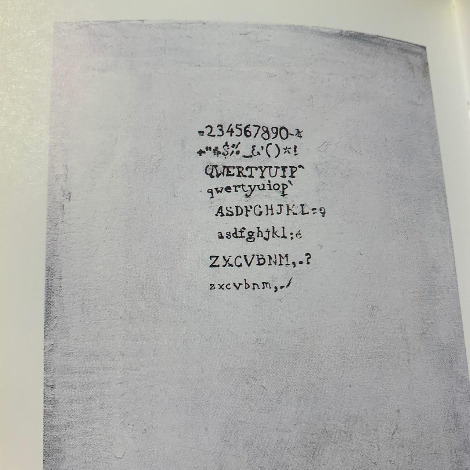 =234567890-½
+"#$%_&'()*!
QWERTYUIP^
qwertyuiop`
ASDFGHJKL:ç
asdfghjkl;é
ZXCVBNM,.?
zxcvbnm,./